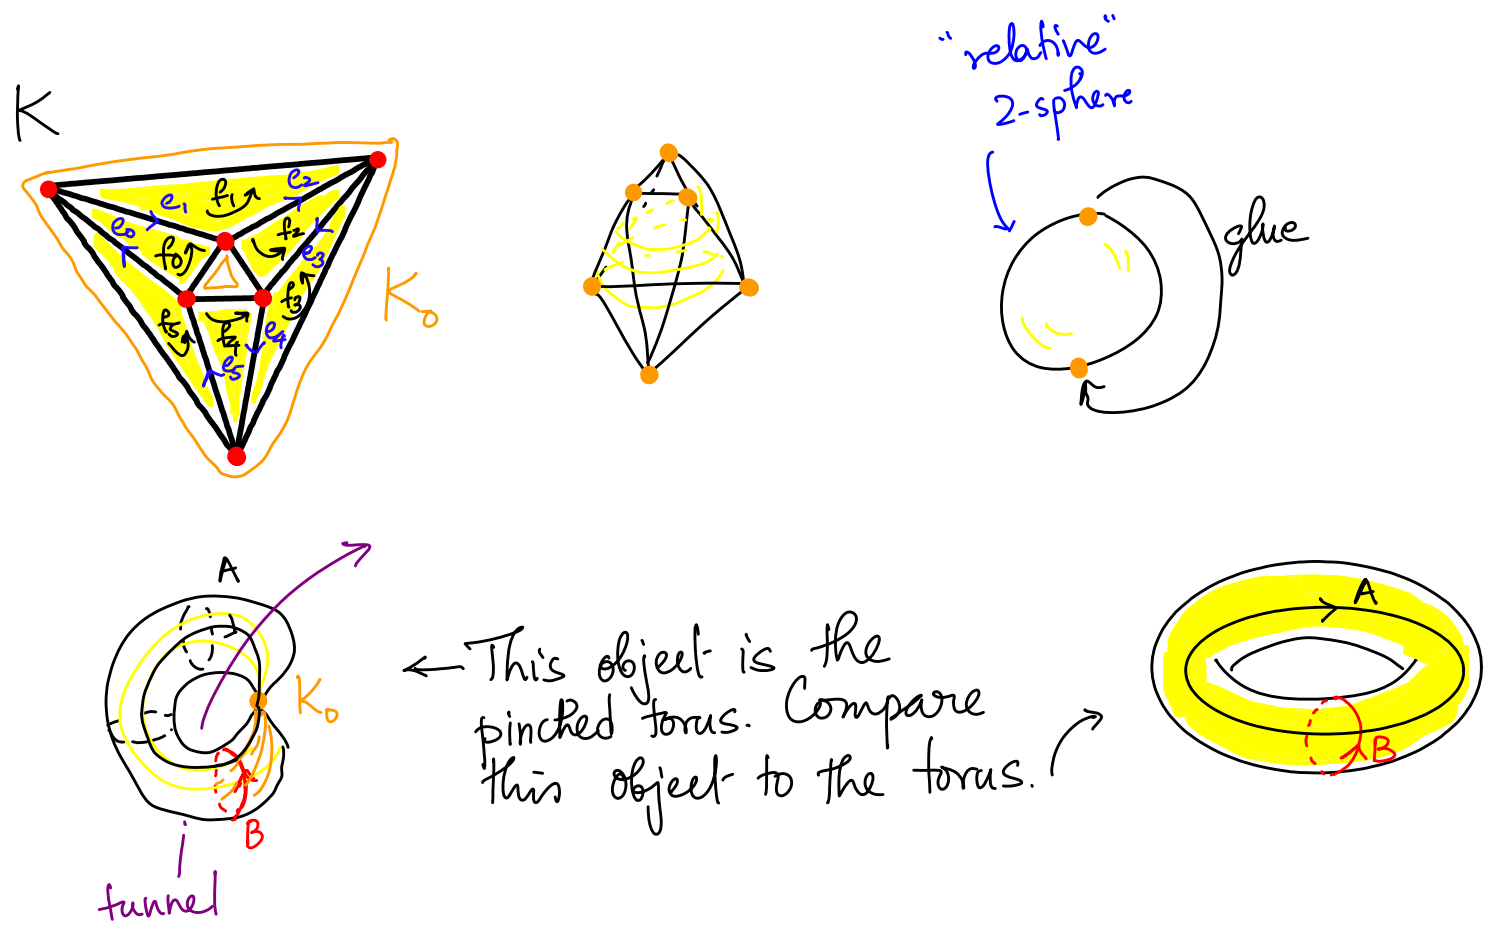 K
e₁
f₁
e₂
e₀
f₀
f₂
e₃
f₃
K₀
f₅
f₄
e₄
e₅
"relative"
2-sphere
glue
A
K₀
B
tunnel
This object is the
pinched torus. Compare
this object to the torus.
A
B